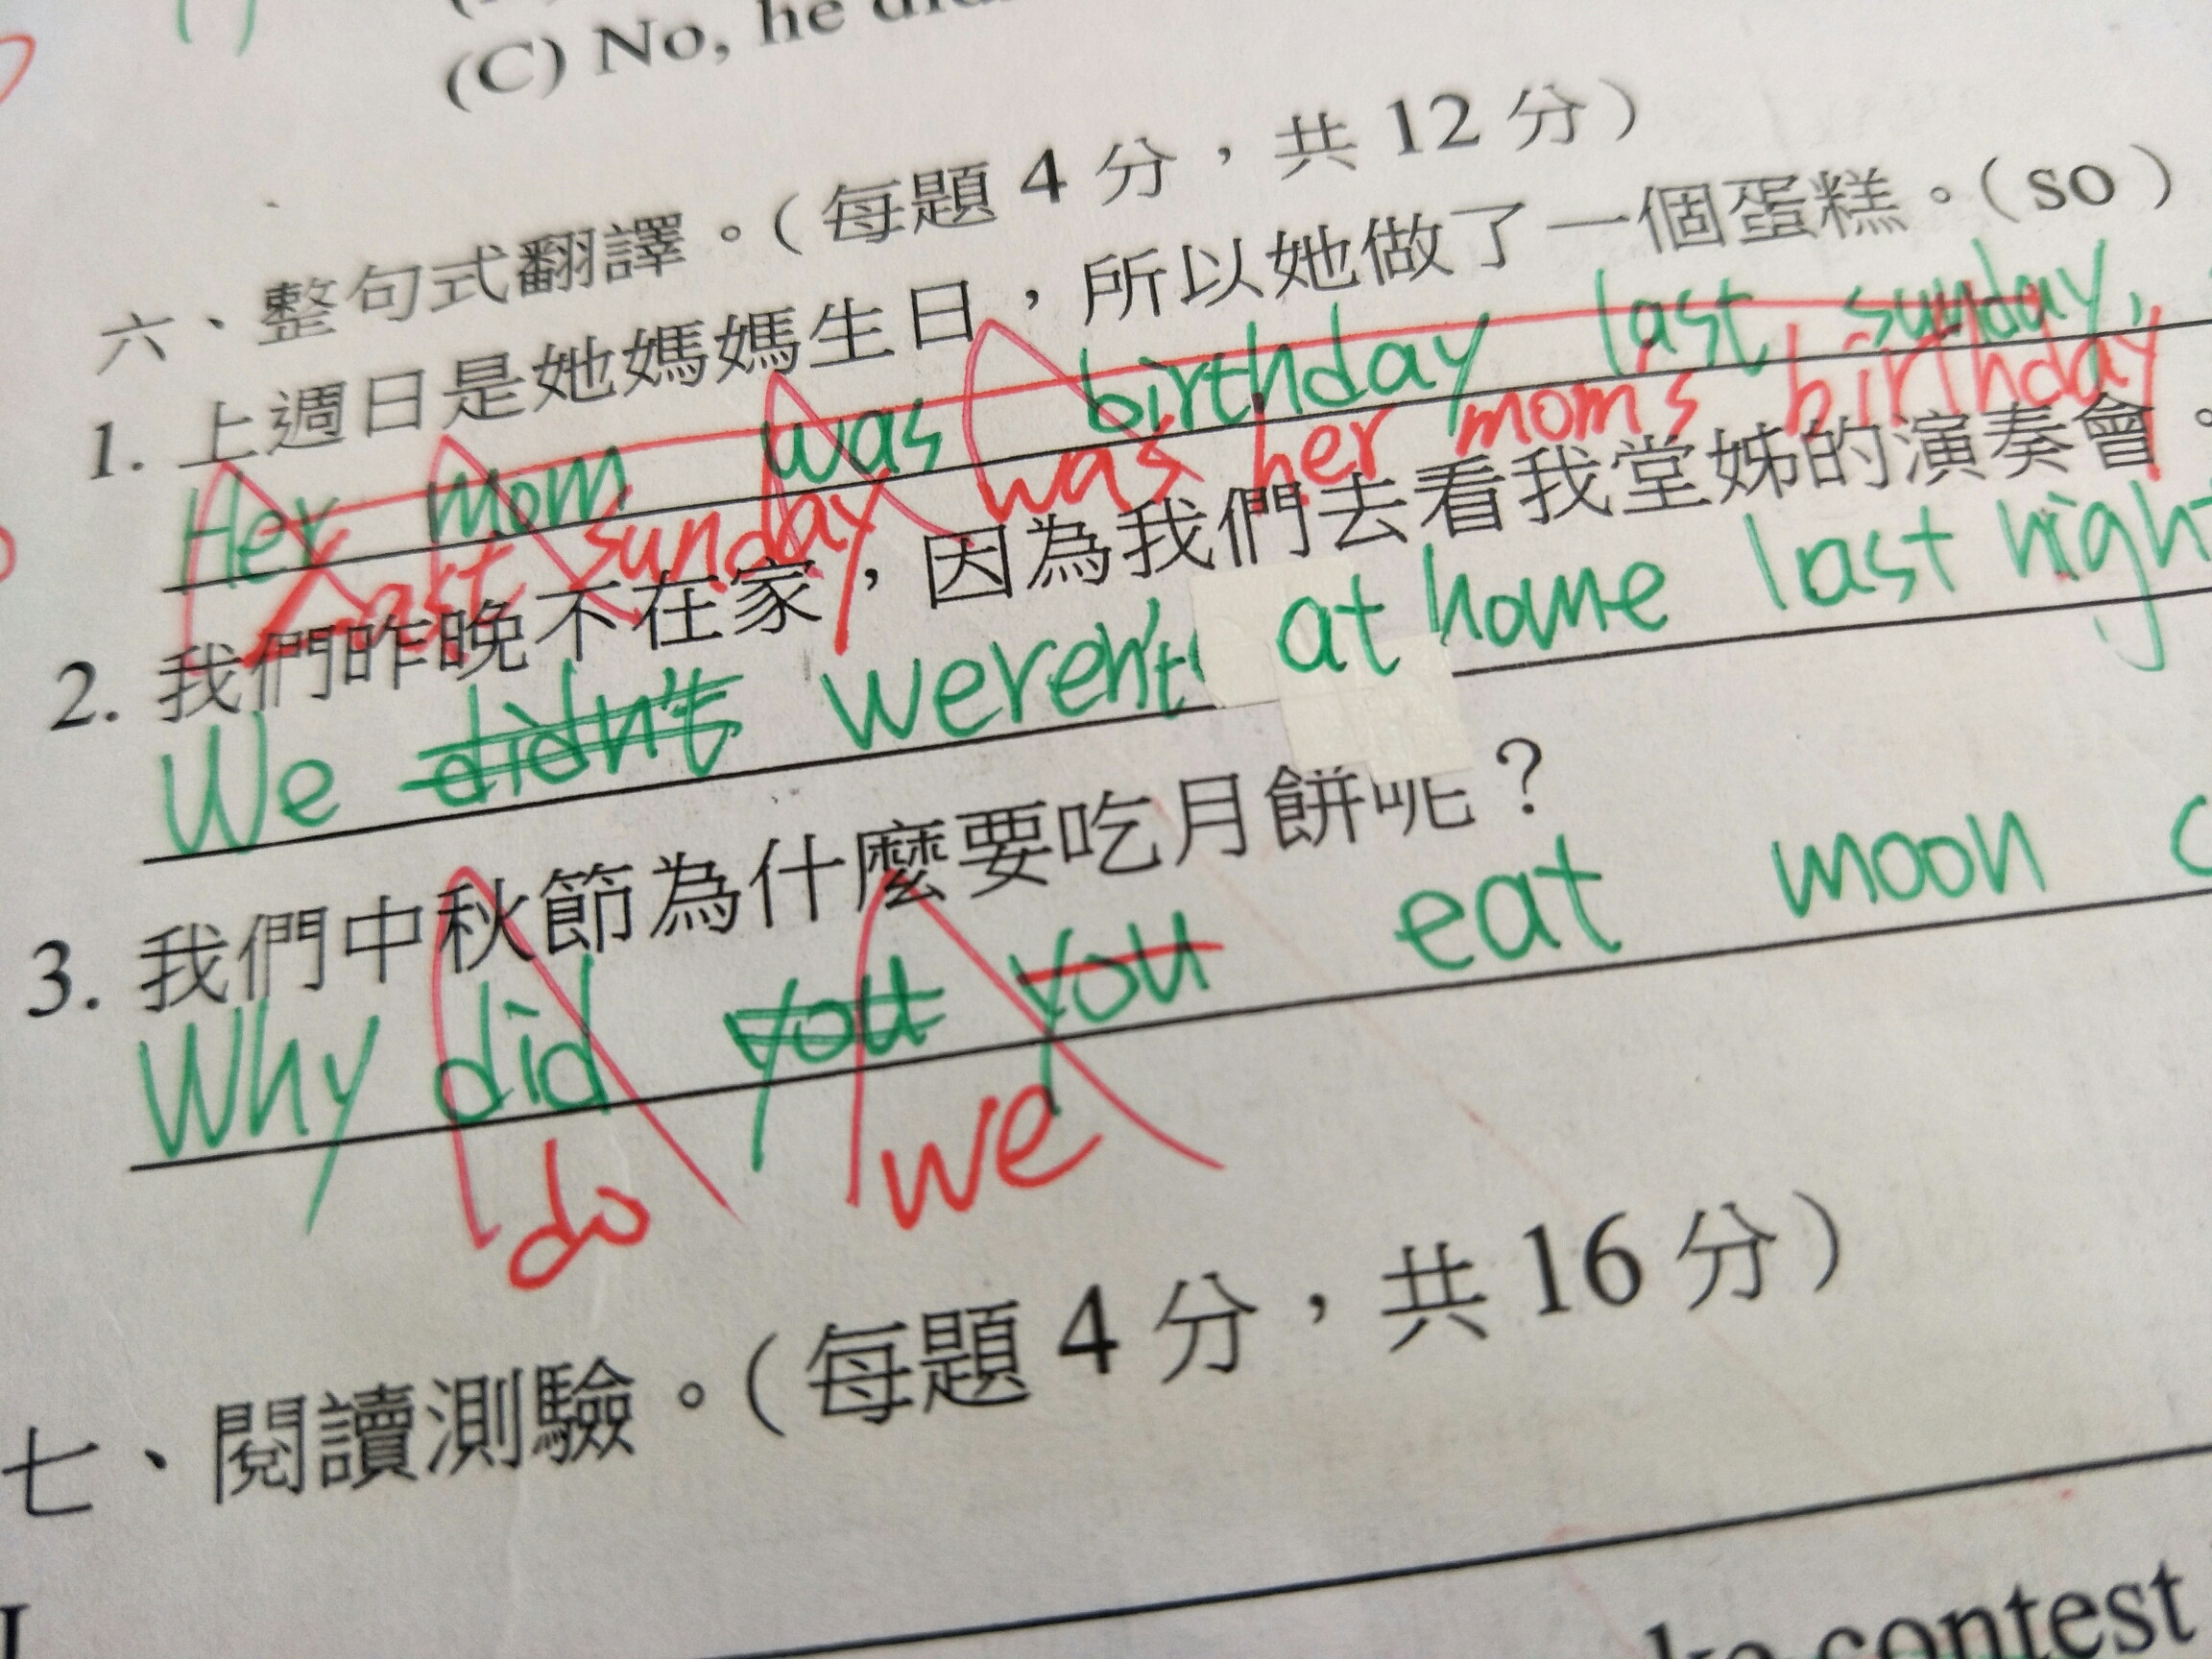 (C) No, he
六、整句式翻譯。(每題 4 分，共 12 分)
1. 上週日是她媽媽生日，所以她做了一個蛋糕。(so)
Her mom was birthday last sunday,
Last sunday was her mom's birthday
2. 我們昨晚不在家，因為我們去看我堂姊的演奏會。
We didn't weren't at home last night
3. 我們中秋節為什麼要吃月餅呢？
Why did you you eat moon
do we
七、閱讀測驗。(每題 4 分，共 16 分)
contest